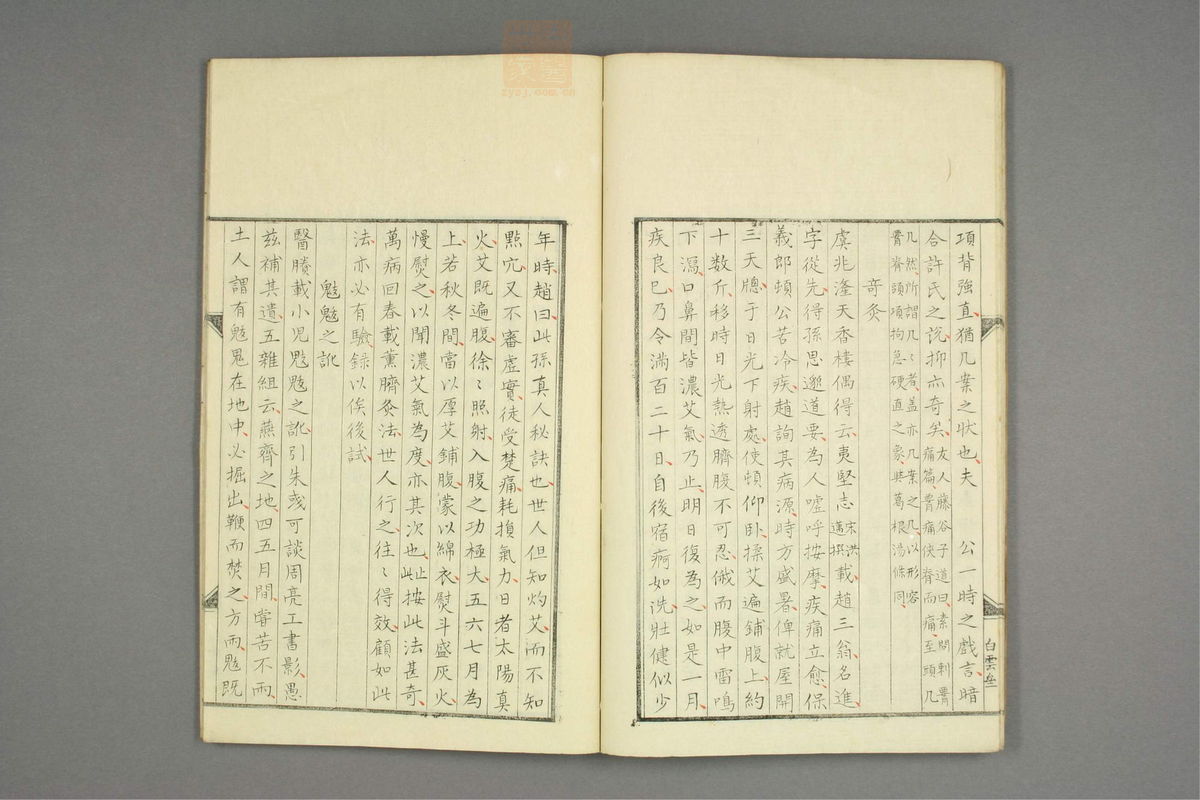 項背強直猶几案之狀也夫　公一時之戲言暗
合許氏之說抑亦奇矣友人藤谷子道曰素問刺
痛篇痛俠脊而痛至頭几
几然所謂几〻者蓋亦几案之几以形容
脊頭項拘急硬直之象與葛根湯條同
奇灸
虞兆漋天香樓偶得云夷堅志宋洪邁撰載趙三翁名進
字從先得孫思邈道要為人噓呼按摩疾痛立愈保
義郎頓公苦冷疾趙詢其病源時方盛暑俾就屋開
三天牕于日光下射處使頓仰臥揉艾遍鋪腹上約
十數斤移時日光熱透臍腹不可忍俄而腹中雷鳴
下瀉口鼻間皆濃艾氣乃止明日復為之如是一月
疾良已乃令滿百二十日自後宿痾如洗壯健似少
年時趙曰此孫真人秘訣也世人但知灼艾而不知
點穴又不審虛實徒受楚痛耗損氣力日者太陽真
火艾既遍腹徐〻照射入腹之功極大五六七月為
上若秋冬間當以厚艾鋪腹蒙以綿衣熨斗盛灰火
慢熨之以聞濃艾氣為度亦其次也止此按此法甚奇
萬病回春載薰臍灸法世人行之往〻得效顧如此
法亦必有驗錄以俟後試
魃魃之訛
醫賸載小兒魃魃之訛引朱彧可談周亮工書影愚
茲補其遺五雜組云燕齊之地四五月間嘗苦不雨
土人謂有魃鬼在地中必掘出鞭而焚之方雨魃既
白雲
zysj.com.cn